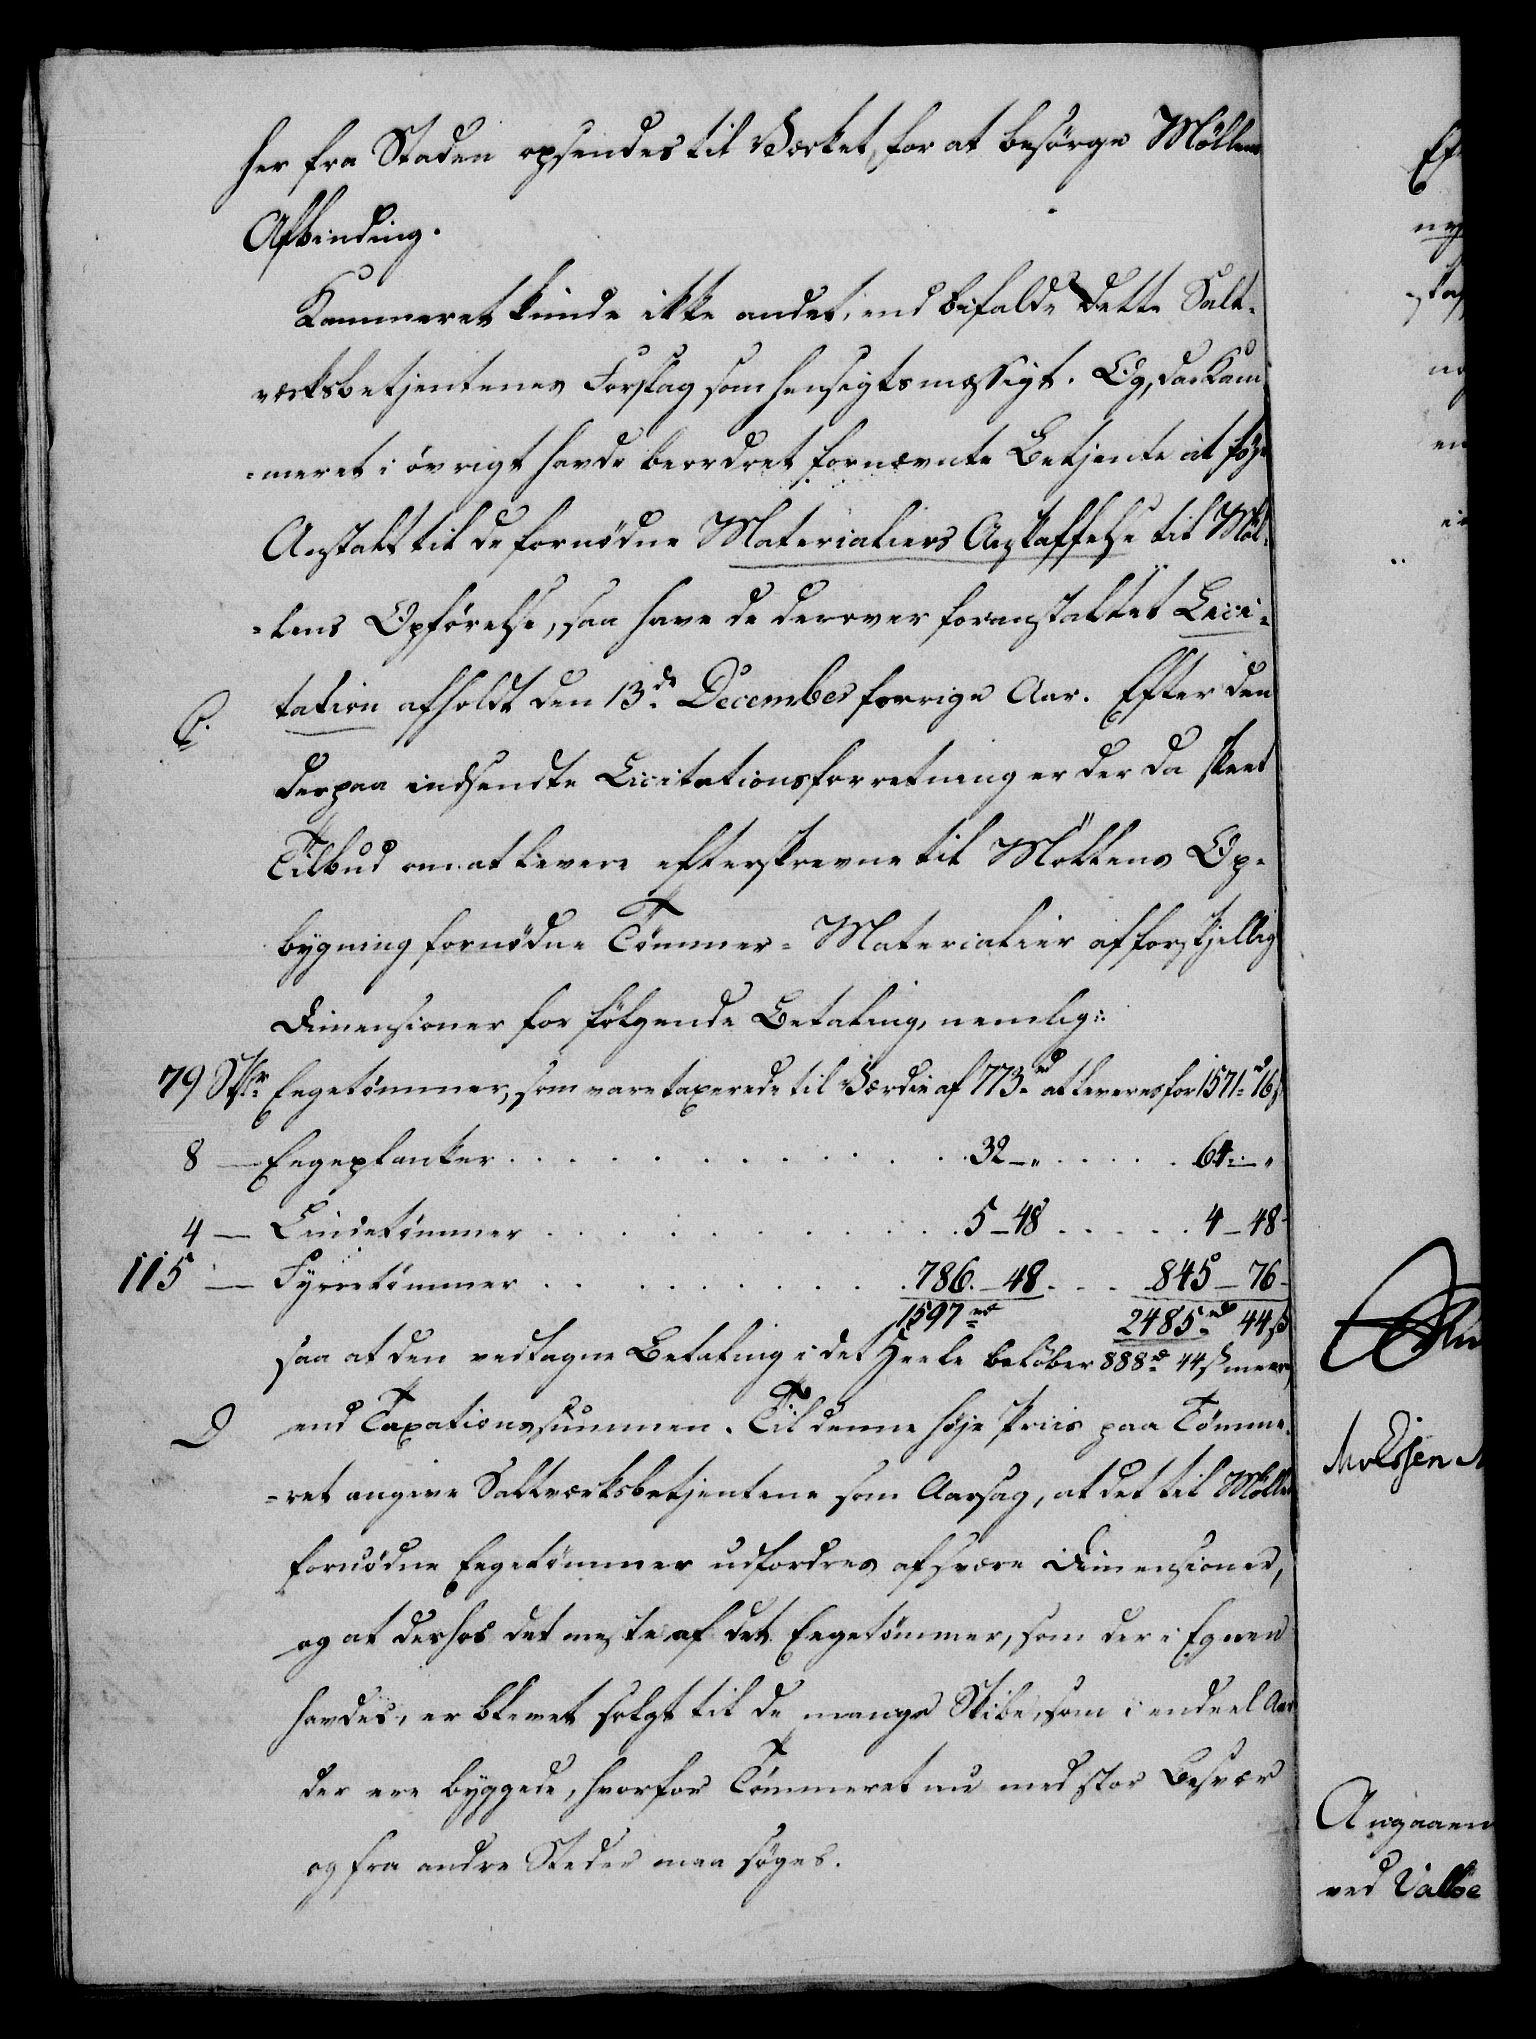 her fra Staden opsendes til Værket, for at besørge Møllens
Afbinding.
Kammeret kunde ikke andet, end bifalde dette Salt-
værksbetjentenes Forslag som hensigtsmæssigt. Og, da Kam-
=meret i øvrigt havde beordret fornævnte Betjente at føje
Anstalt til de fornødne Materialiers Anskaffelse til Møl-
=lens Opførelse, saa have de derover foranstaltet Lici-
C. tation afholdt den 13de December forrige Aar. Efter den
derpaa indsendte Licitationsforretning er der da skeet
Tilbud om at levere efterskrevne til Møllens Op-
bygning fornødne Tømmer-Materialier af forskjellig
Dimensioner for følgende Betaling, nemlig:
79 Stkr Eegetømmer, som vare taxerede til Værdie af 773 rd at leveres for 1571 rd 16 ß
8 — Eegeplanker . . . 32 — „ . . . 64 — „
4 — Lindetømmer . . . 5 — 48 . . . 4 — 48 -
115 — Fyrretømmer . . . 786 — 48 . . . 845 — 76 -
1597 rd 2485 rd 44 ß
saa at den vedtagne Betaling i det Heele beløber 888 rd 44 ß meere,
D end Taxationssummen. Til denne høje Priis paa Tømme-
=ret angive Saltværksbetjentene som Aarsag, at det til Møllen
fornødne Eegetømmer udfordres af svære Dimensioner,
og at derhos det meste af det Eegetømmer, som der i Egnen
havdes, er blevet solgt til de mange Skibe, som i endeel Aar
der ere byggede, hvorfor Tømmeret nu med stor Besvær
og fra andre Steder maa søges.
Angaaen
ved Valløe